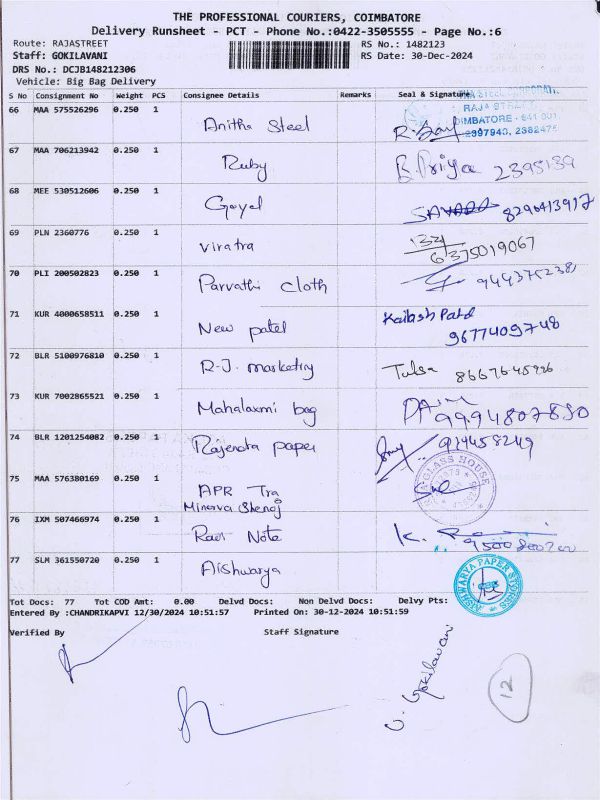 THE PROFESSIONAL COURIERS, COIMBATORE
Delivery Runsheet - PCT - Phone No.:0422-3505555 - Page No.:6
Route: RAJASTREET RS No.: 1482123
Staff: GOKILAVANI RS Date: 30-Dec-2024
DRS No.: DCJB148212306
Vehicle: Big Bag Delivery
S No Consignment No Weight PCS Consignee Details Remarks Seal & Signature
66 MAA 575526296 0.250 1 Anitha Steel
RAJA STREET
COIMBATORE - 641 001
2397943, 2382475
67 MAA 706213942 0.250 1 Ruby B. Priya 2395139
68 MEE 530512606 0.250 1 Goyel 8290413917
69 PLN 2360776 0.250 1 Viratra
6375019067
70 PLI 200502823 0.250 1 Parvathi cloth 944375238
71 KUR 4000658511 0.250 1 New patel Kailash Patel
9677409748
72 BLR 5100976810 0.250 1 R-J. marketing Tulsa
73 KUR 7002865521 0.250 1 Mahalaxmi bag 9994807850
74 BLR 1201254082 0.250 1 Rajendra paper
GLASS HOUSE
75 MAA 576380169 0.250 1 APR
Minerva
76 IXM 507466974 0.250 1 Ravi Note K.
77 SLM 361550720 0.250 1 Aishwarya
AISHWARYA PAPER
Tot Docs: 77 Tot COD Amt: 0.00 Delvd Docs: Non Delvd Docs: Delvy Pts:
Entered By :CHANDRIKAPVI 12/30/2024 10:51:57 Printed On: 30-12-2024 10:51:59
Verified By Staff Signature
V. Gokilavani
12